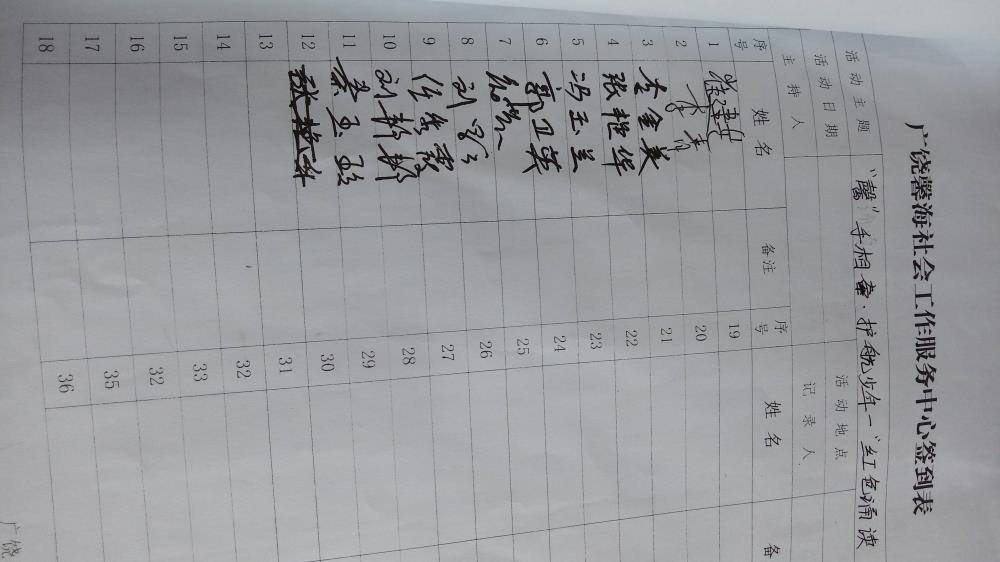 广饶馨海社会工作服务中心签到表
活动主题 “馨”手相牵·护航少年—“红色诵读
活动日期 活动地点
主持人 记录人
序号 姓名 备注 序号 姓名 备
1 19
2 李青 20
3 李金美 21
4 张艳华 22
5 冯玉兰 23
6 郭卫英 24
7 25
8 26
9 27
10 28
11 29
12 30
13 31
14 32
15 33
16 32
17 35
18 36
广饶